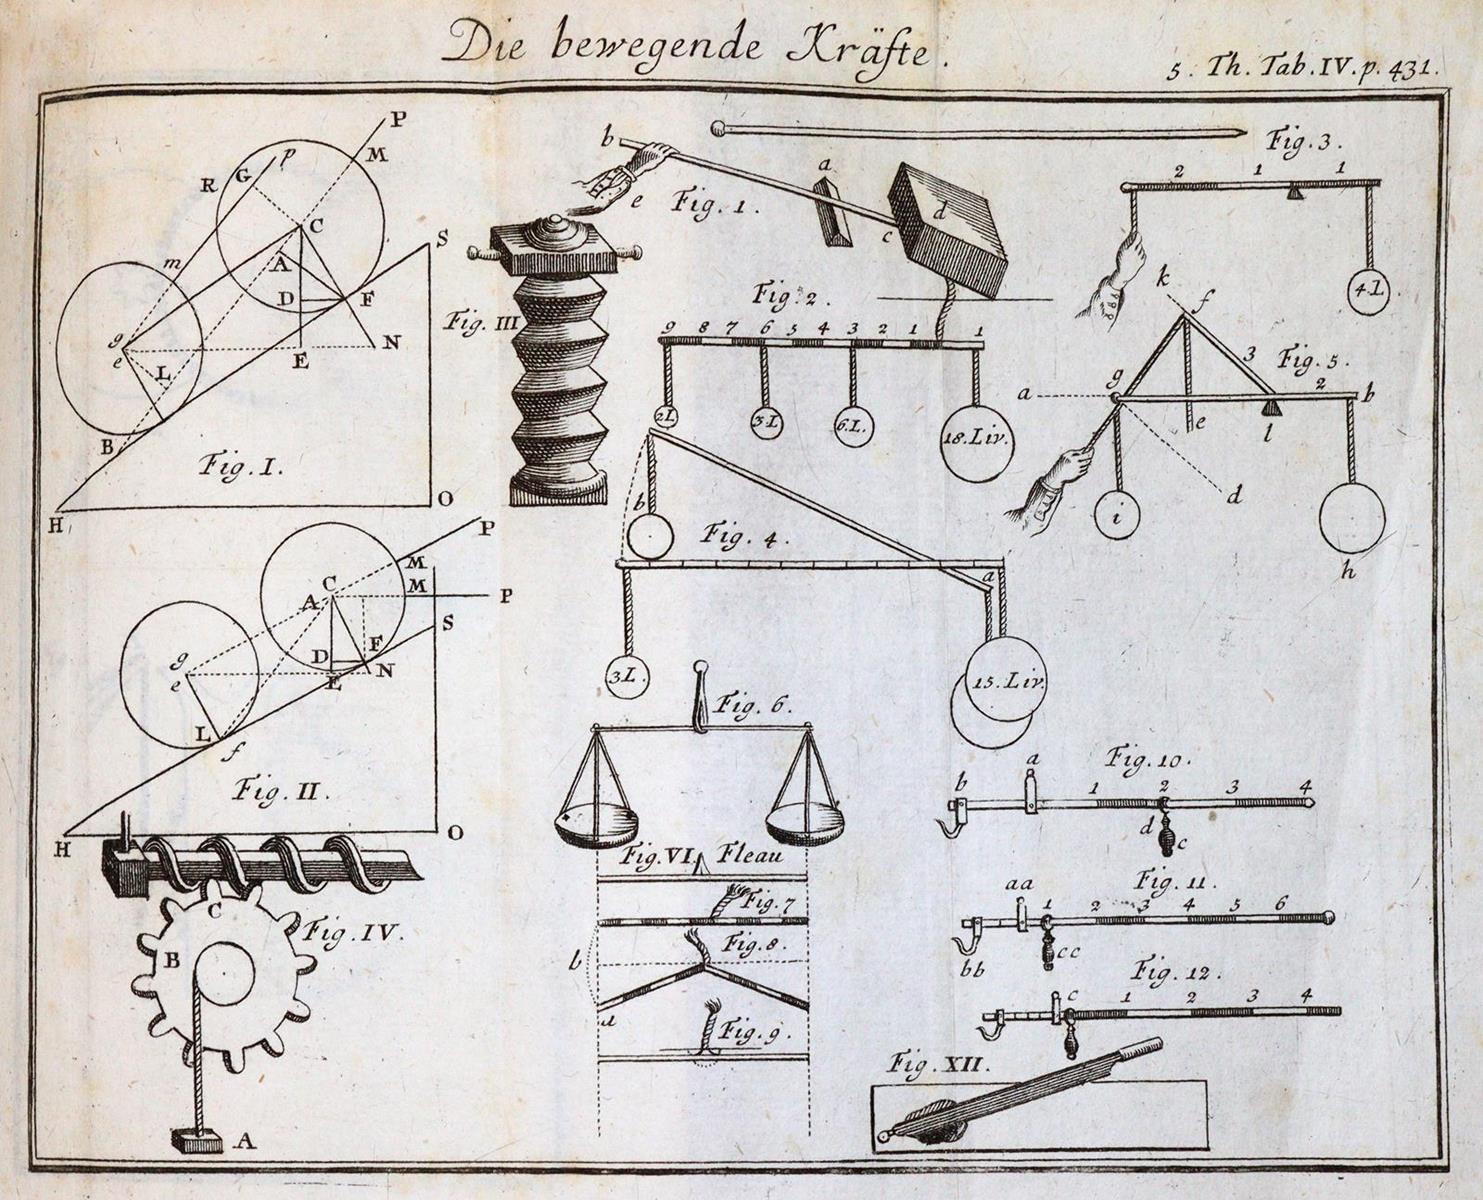 Die bewegende Kräfte.
5. Th. Tab. IV. p. 431.
P
M
p
G
R
C
m
A
S
D
F
g
e
E
N
L
B
Fig. I.
H
O
b
a
e
Fig. 1.
d
c
Fig. III
Fig. 2.
9 8 7 6 5 4 3 2 1 1
2L
3.L
6.L.
18.Liv.
Fig. 3.
2 1 1
4L
k
f
3
Fig. 5.
a
g
2
b
e
l
d
i
h
b
Fig. 4.
a
3L.
15.Liv.
P
M
C
M
A
P
S
g
F
e
D
N
E
L
f
Fig. II.
H
O
Fig. 6.
Fig. VI. Fleau
Fig. 7
Fig. 8.
b
a
Fig. 9.
C
B
Fig. IV.
A
Fig. 10.
b
a
1 2 3 4
d
c
Fig. 11.
aa
1 2 3 4 5 6
bb
cc
Fig. 12.
c 1 2 3 4
Fig. XII.